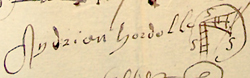 Andrian hordolle